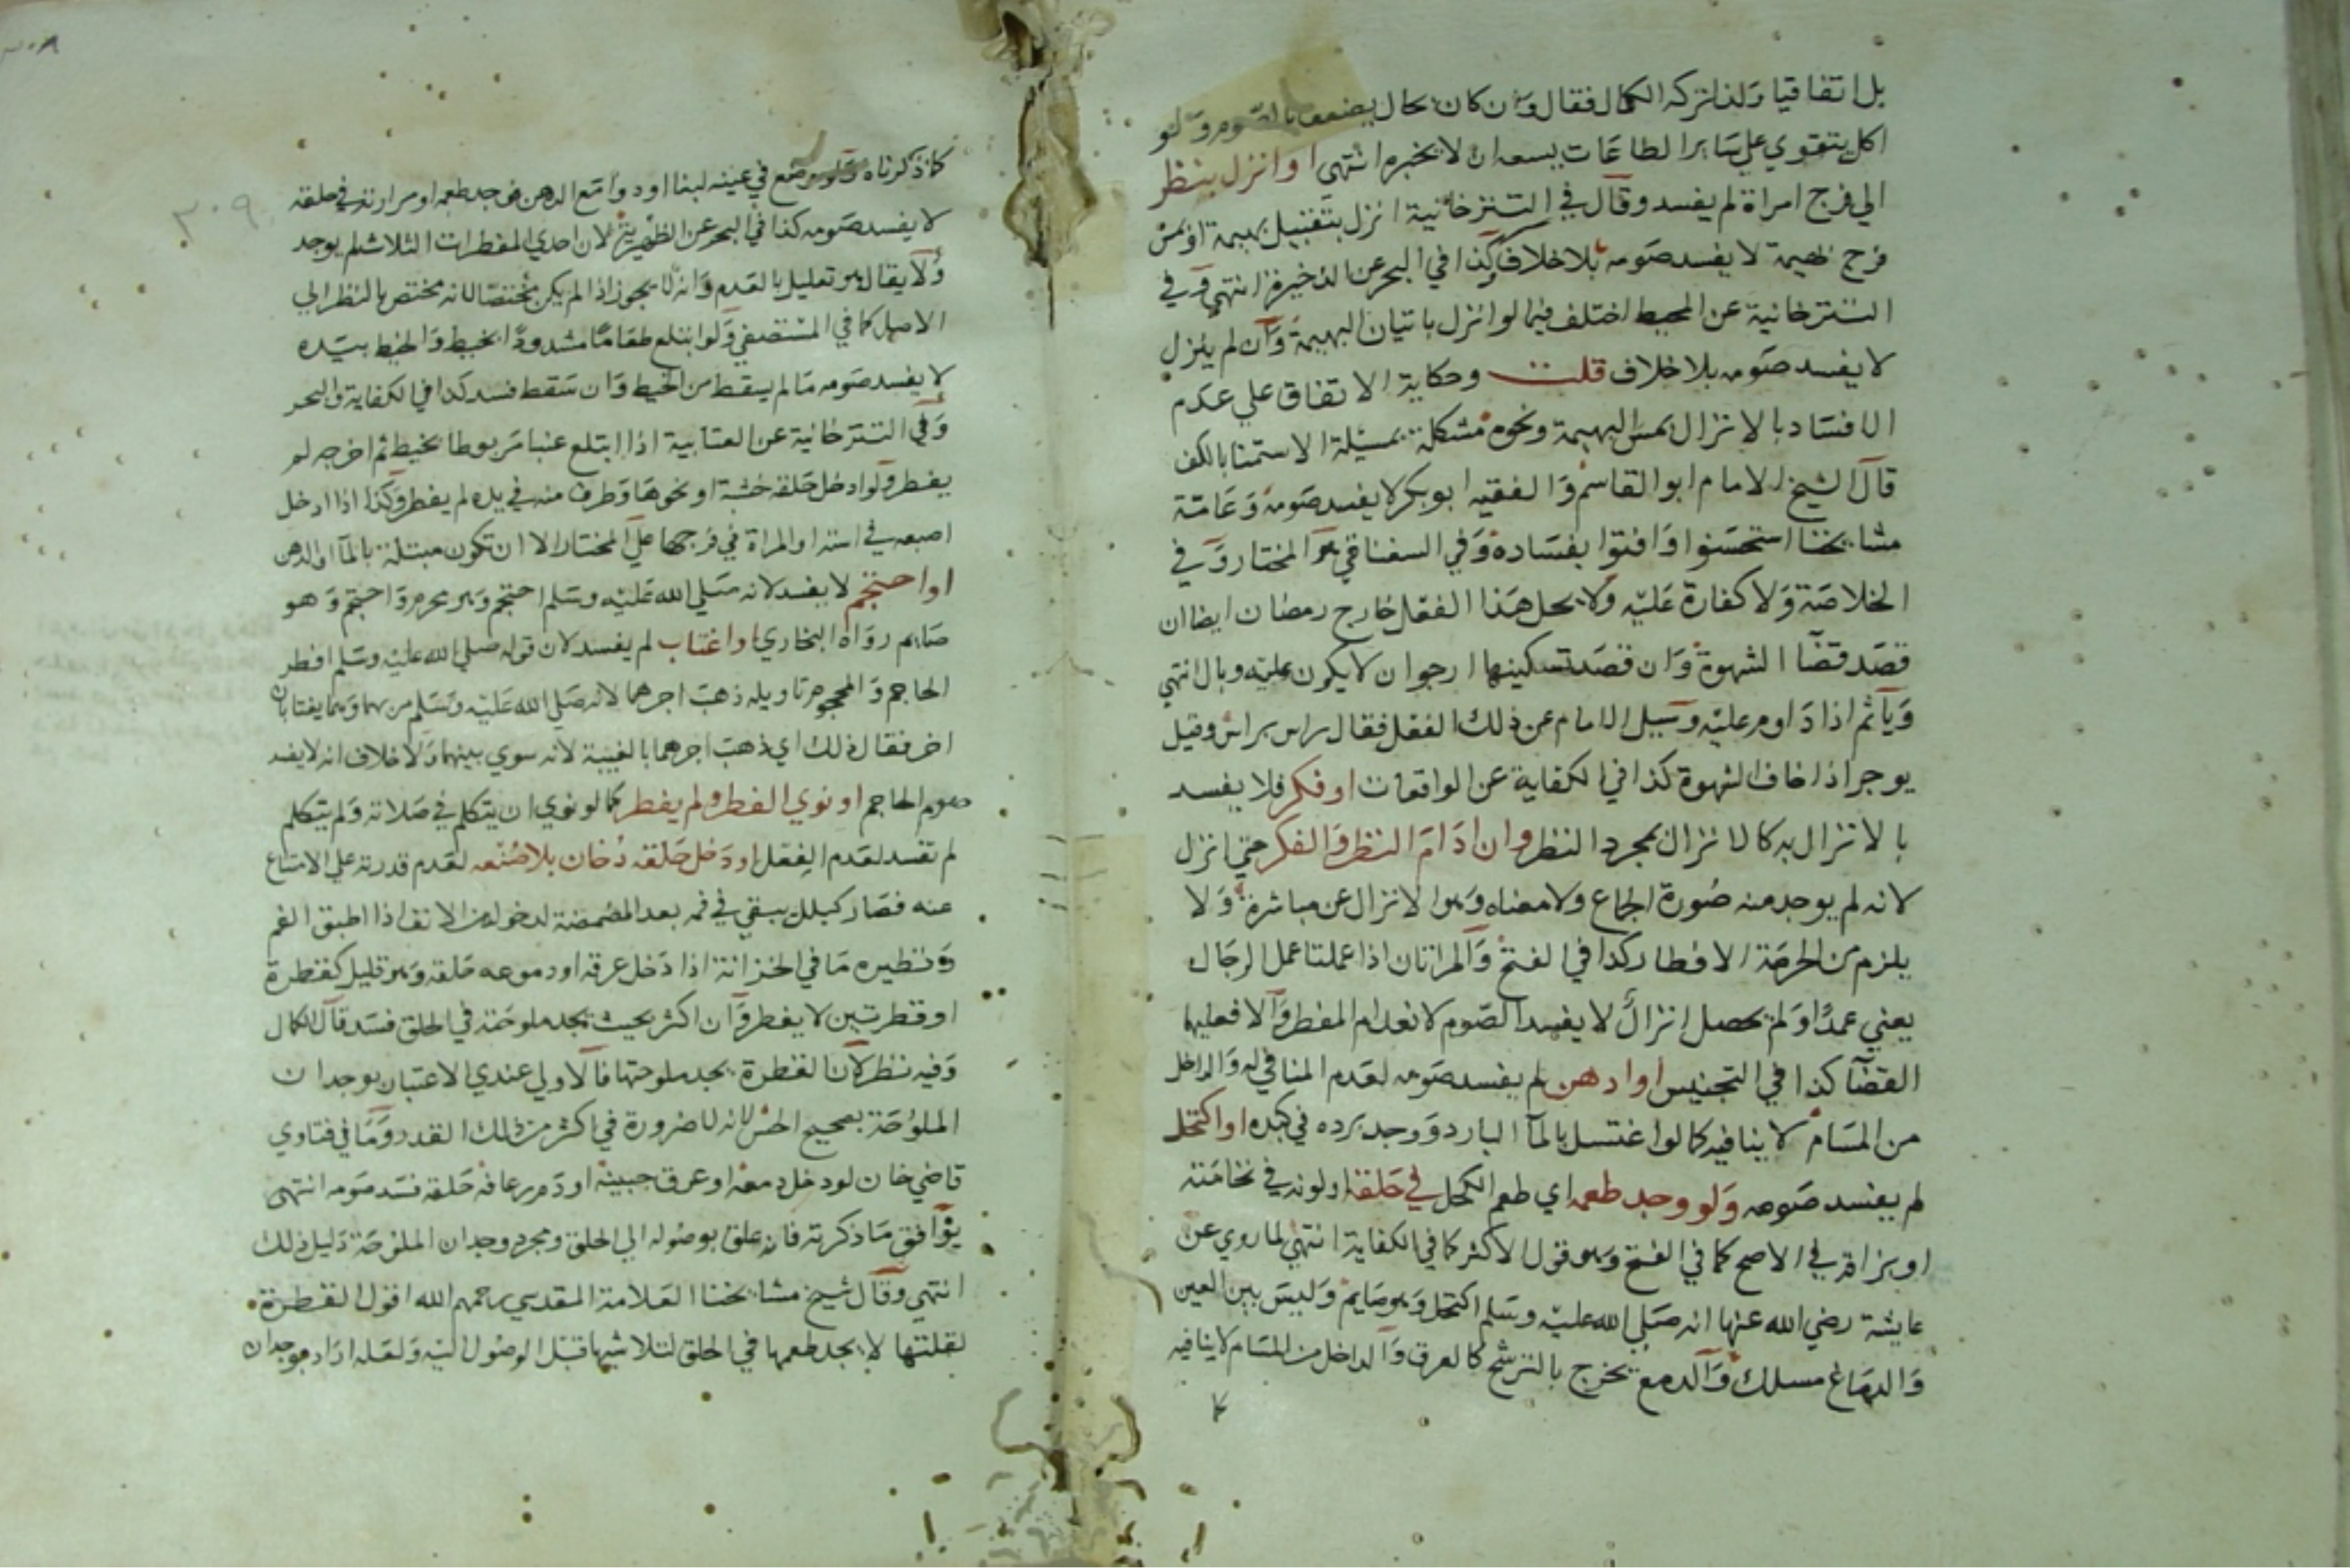 بل اتفاقيا ولذا تركه الكمال فقال وان كان بحال يضعف بالصوم ولو
اكل يتقوي علي ساير الطاعات يسعه ان لا يخبره انتهي او انزل بنظر
الي فرج امراة لم يفسد وقال في التترخانية انزل بتقبيل بهيمة او بمس
فرج بهيمة لا يفسد صومه بلا خلاف كذا في البحر عن الذخيرة انتهي وفي
التترخانية عن المحيط اختلف فيما لو انزل باتيان البهيمة وان لم ينزل
لا يفسد صومه بلا خلاف قلت وحكاية الاتفاق علي عدم
الافساد بالانزال بمس البهيمة ونحوه مشكلة بمسئلة الاستمنا بالكف
قال الشيخ الامام ابو القاسم والفقيه ابو بكر لا يفسد صومه وعامة
مشايخنا استحسنوا وافتوا بفساده وفي السغناقي هو المختار وفي
الخلاصة ولا كفارة عليه ولا يحل هذا الفعل خارج رمضان ايضا ان
قصد قضا الشهوة وان قصد تسكينها ارجو ان لا يكون عليه وبال انتهي
وياثم اذا داوم عليه وسيل الامام عن ذلك الفعل فقال راس براس وقيل
يوجر اذا خاف الشهوة كذا في الكفاية عن الواقعات او فكر فلا يفسد
بالانزال به كالانزال بمجرد النظر وان ادام النظر والفكر حتي انزل
لانه لم يوجد منه صورة الجماع ولا معناه وهو الانزال عن مباشرة ولا
يلزم من الحرمة الافطار كذا في الفتح والمراتان اذا عملتا عمل الرجال
يعني عمدا ولم يحصل انزال لا يفسد الصوم لانعدام المفطر والا فعليهما
القضا كذا في التجنيس او ادهن لم يفسد صومه لعدم المنافي له والداخل
من المسام لا ينافيه كما لو اغتسل بالما البارد ووجد برده في كبده او اكتحل
لم يفسد صومه ولو وجد طعمه اي طعم الكحل في حلقه او لونه في نخامته
او بزاقه في الاصح كما في الفتح وهو قول الاكثر كما في الكفاية انتهي لما روي عن
عايشة رضي الله عنها انه صلي الله عليه وسلم اكتحل وهو صايم وليس بين العين
والدماغ مسلك والدمع يخرج بالترشح كالعرق والداخل من المسام لا ينافيه
كما
٣٠٩
كما ذكرناه ولو وضع في عينه لبنا او دوا مع الدهن فوجد طعمه او مرارته في حلقه
لا يفسد صومه كذا في البحر عن الظهيرية لان احدي المفطرات الثلاث لم يوجد
ولا يقال هو تعليل بالعدم وانه لا يجوز اذا لم يكن مختصا لانه مختص بالنظر الي
الاصل كما في المستصفي ولو ابتلع طعاما مشدودا بخيط والخيط بيده
لا يفسد صومه ما لم يسقط من الخيط وان سقط فسد كذا في الكفاية والبحر
وفي التترخانية عن العتابية اذا ابتلع عنبا مربوطا بخيط ثم اخرجه لم
يفطر ولو ادخل حلقه خشبة او نحوها وطرف منه في يده لم يفطر وكذا اذا ادخل
اصبعه في استه او المراة في فرجها علي المختار الا ان تكون مبتلة بالما او الدهن
او احتجم لا يفسد لانه صلي الله عليه وسلم احتجم وهو محرم واحتجم وهو
صايم رواه البخاري او اغتاب لم يفسد لان قوله صلي الله عليه وسلم افطر
الحاجم والمحجوم تاويله ذهب اجرهما لانه صلي الله عليه وسلم مر بهما وهما يغتابان
اخر فقال ذلك اي ذهب اجرهما بالغيبة لانه سوي بينهما ولا خلاف انه لا يفسد
صوم الحاجم او نوي الفطر ولم يفطر كما لو نوي ان يتكلم في صلاته ولم يتكلم
لم تفسد لعدم الفعل او دخل حلقه دخان بلا صنعه لعدم قدرته علي الامتناع
عنه فصار كبلل يبقي في فمه بعد المضمضة لدخوله من الانف اذا اطبق الفم
ونظيره ما في الخزانة اذا دخل عرقه او دموعه حلقه وهو قليل كقطرة
او قطرتين لا يفطر وان اكثر بحيث يجد ملوحته في الحلق فسد قال الكمال
وفيه نظر لان القطرة يجد ملوحتها فالاولي عندي الاعتبار بوجدان
الملوحة بصحيح الحس لانه لا ضرورة في اكثر من ذلك القدر وما في فتاوي
قاضي خان لو دخل دمعه او عرق جبينه او دم رعافه حلقه فسد صومه انتهي
يوافق ما ذكرته فانه علق بوصوله الي الحلق ومجرد وجدان الملوحة دليل ذلك
انتهي وقال شيخ مشايخنا العلامة المقدسي رحمهم الله اقول القطرة
لقلتها لا يجد طعمها في الحلق لتلاشيها قبل الوصول اليه ولعله اراد بوجدان